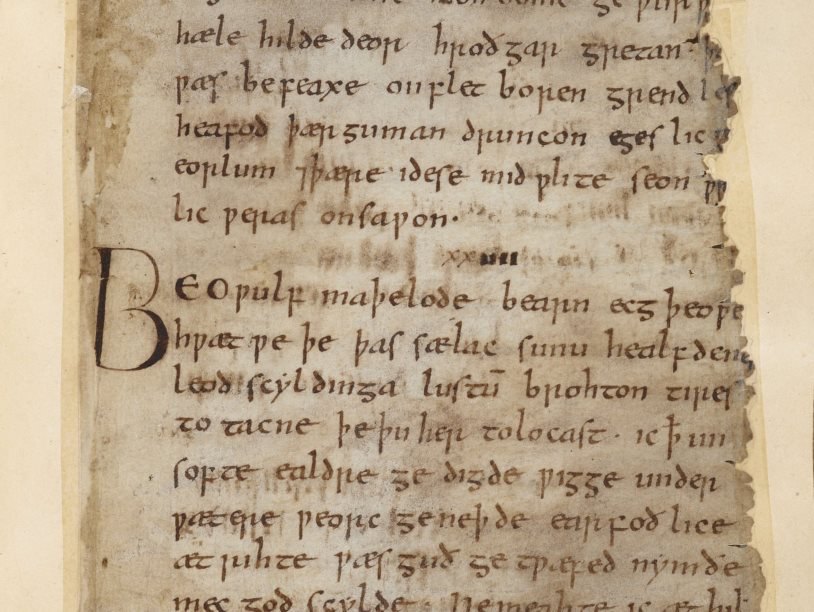 hæle hilde deor hroðgar gretan·
ƿæs be feaxe on flet boren grendles
heafod þær guman druncon eges lic
eorlum ⁊ þære idese mid ƿlite seon
lic ƿeras onsaƿon·
xxiiii
BEOƿulf maþelode bearn ecg þeoƿe
hƿæt ƿe þe þas sælac sunu healfdene
leod scyldinga lustū brohton tires
to tacne þe þu her to locast · ic ꝥ un
softe ealdre ge digde ƿigge under
ƿætere ƿeorc ge neþde earfoð lice
æt rihte ƿæs guð ge tƿæfed nymðe
mec god scylde. Ne meahte ic æt hil